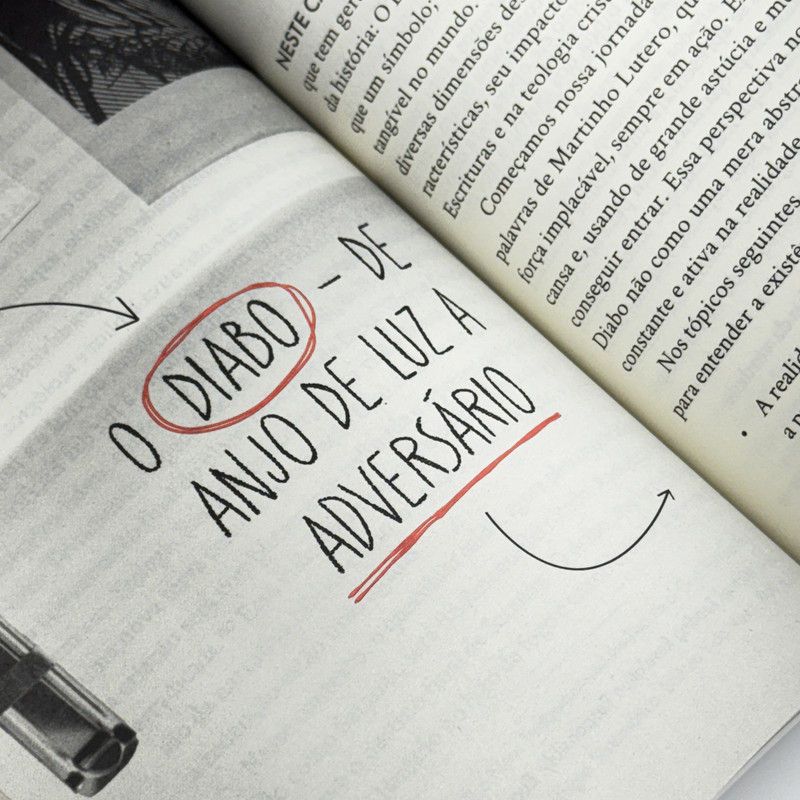 O DIABO – DE
ANJO DE LUZ A
ADVERSÁRIO
NESTE C
que tem ger
da história: O
que um símbolo;
tangível no mundo.
diversas dimensões de
racterísticas, seu impacto
Escrituras e na teologia cris
Começamos nossa jornada
palavras de Martinho Lutero, qu
força implacável, sempre em ação. E
cansa e, usando de grande astúcia e m
conseguir entrar. Essa perspectiva n
Diabo não como uma mera abstra
constante e ativa na realidade
Nos tópicos seguintes
para entender a existê
• A realid
a p